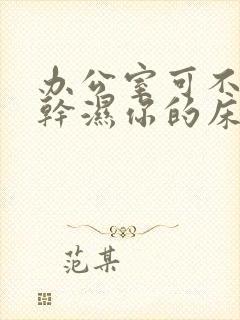 办公室可不
幹濕你的床
范某